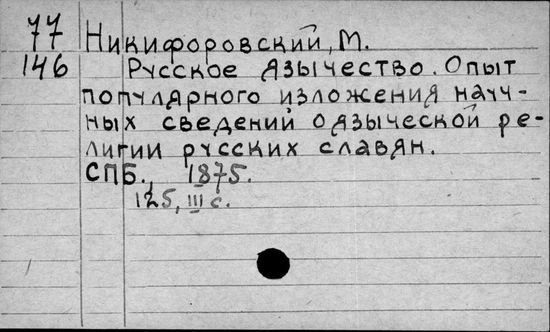 77 Никифоровский, М.
146 Русское язычество. Опыт
популярного изложения науч-
ных сведений о языческой ре-
лигии русских славян.
СПБ., 1875.
125, III с.